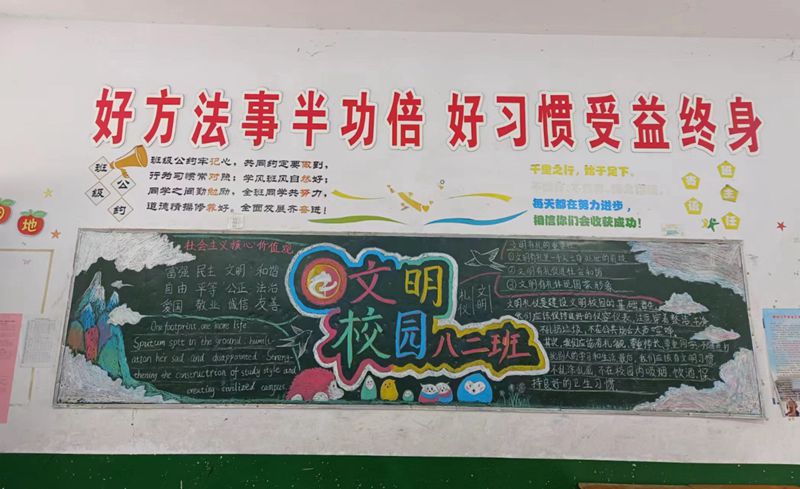 好方法事半功倍 好习惯受益终身
班级公约
班级公约牢记心，共同约定要做到，
行为习惯常对照；学风班风自然好；
同学之间勤勉励，全班同学共努力，
道德情操修养好。全面发展齐奋进！
千里之行，始于足下。
每天都在努力进步，
相信你们会收获成功！
责任
地
社会主义核心价值观
富强 民主 文明 和谐
自由 平等 公正 法治
爱国 敬业 诚信 友善
One footprint, one more life
Sputum spits in the ground, humili-
ation her sad and disappointed. Streng-
thening the construction of study style and
creating civilized campus.
文明
校园
八二班
文明
礼仪
文明礼仪的重要性
②文明有礼促进社会和谐
③文明有礼体现国家形象
文明礼仪是建设文明校园的基础,首先
我们应该保持良好的仪容仪表,注意穿着整洁
不乱扔垃圾,不在公共场合大声喧哗
不乱涂乱画,不在校园内吸烟饮酒,保
持良好的卫生习惯